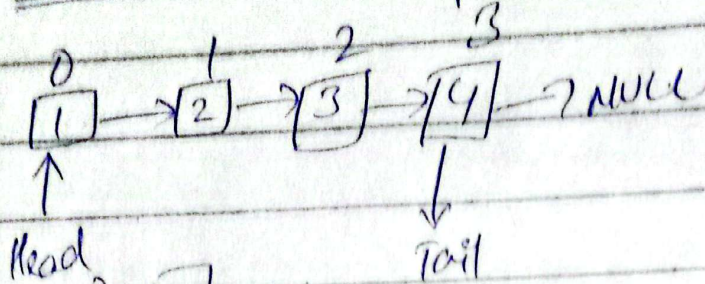 0 1 2 3
1 → 2 → 3 → 4 → NULL
Head Tail